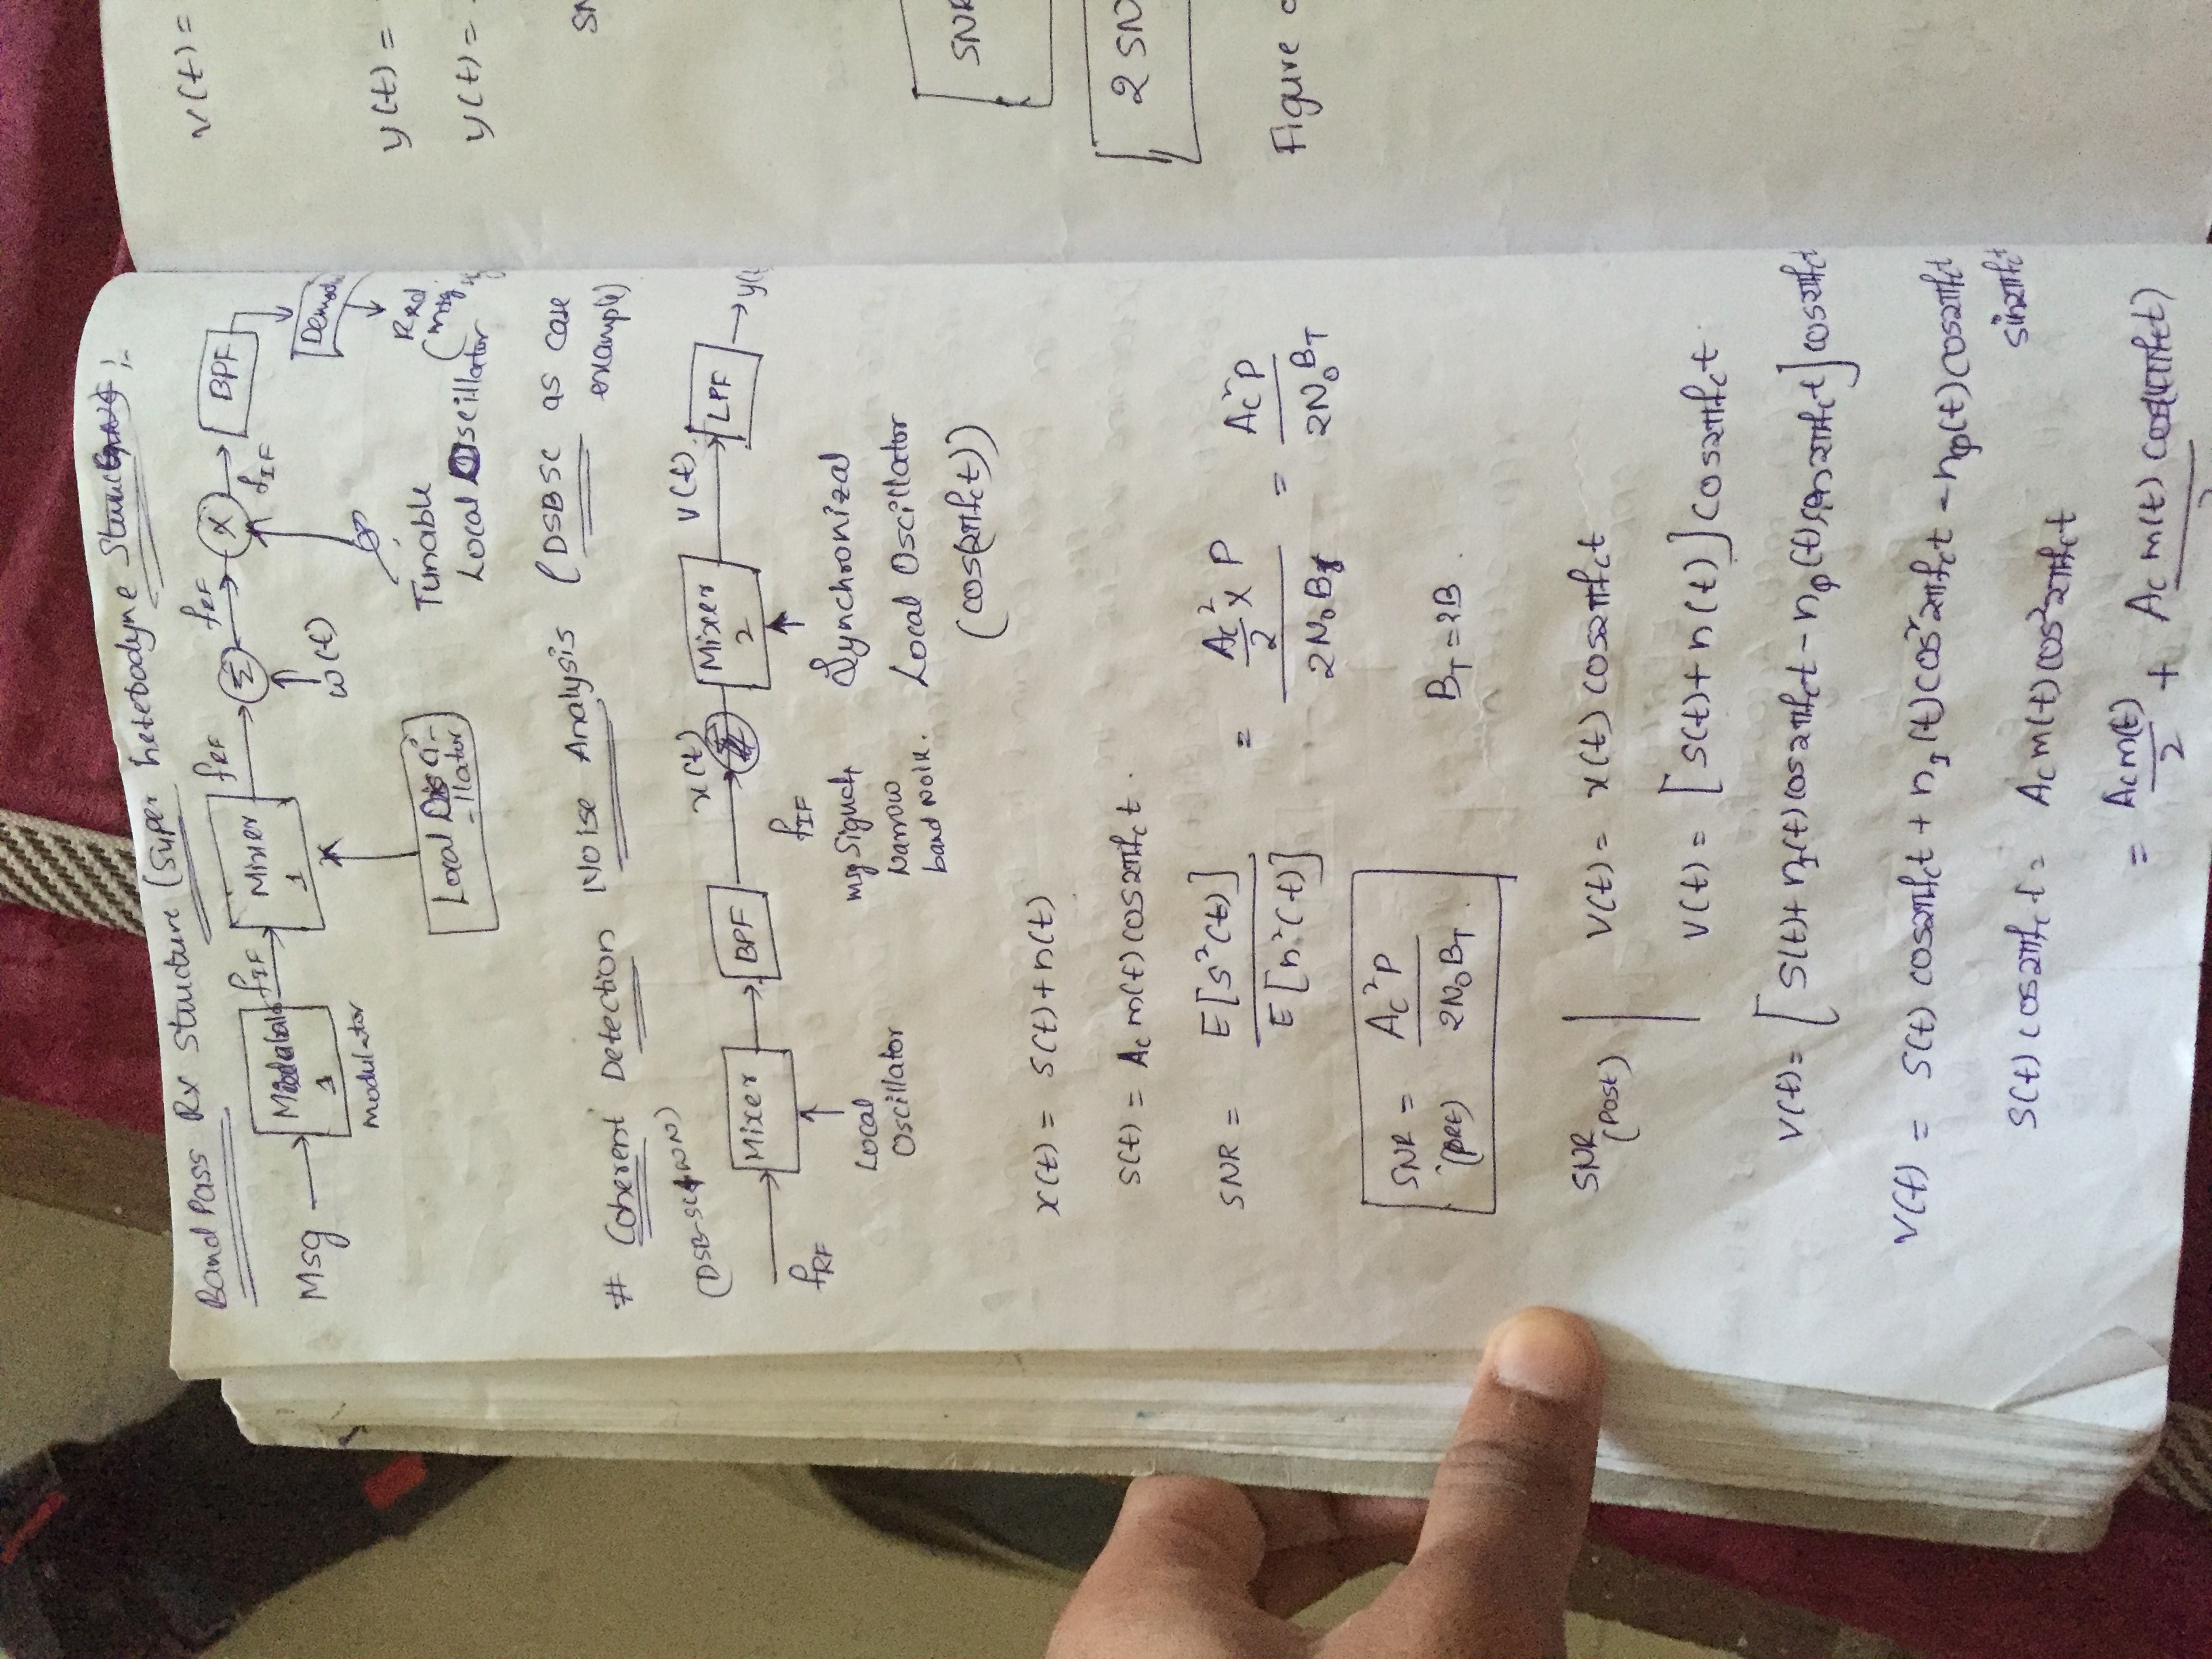 Band Pass Rx Structure (Super heterodyne
Msg → Modulator 1 fIF → Mixer 1 fRF → Σ fRF → X → BPF
fIF
modulator
w(t)
Demodu
Local Osci-
-llator
Tunable
Local Oscillator
Rxd
(msg
# Coherent Detection Noise Analysis (DSBSC as case
example)
(DSB-SC+WN)
→ Mixer → BPF x(t) → Mixer 2 V(t) → LPF → y(t
fRF
Local
Oscillator
fIF
msg Signal+
Narrow
band Noise.
Synchronized
Local Oscillator
(cos(2πfct))
x(t) = s(t)+n(t)
s(t) = Ac m(t) cos2πfct.
SNR = E[s²(t)] / E[n²(t)] = (Ac²/2 x P) / 2N₀B = Ac²P / 2N₀BT
SNR (pre) = Ac²P / 2N₀BT.
BT=2B.
SNR (Post) | V(t) = x(t) cos2πfct
V(t) = [s(t)+n(t)] cos2πfct.
V(t)= [s(t)+ nI(t) cos2πfct - nQ(t) sin2πfct] cos2πfct
V(t) = s(t) cos2πfct + nI(t) cos²2πfct - nQ(t) cos2πfct
sin2πfct
s(t) cos2πfct = Ac m(t) cos²2πfct
= Ac m(t)/2 + Ac m(t) cos(4πfct)
V(t) =
y(t) =
y(t) =
SN
SNR
2 SN
Figure o